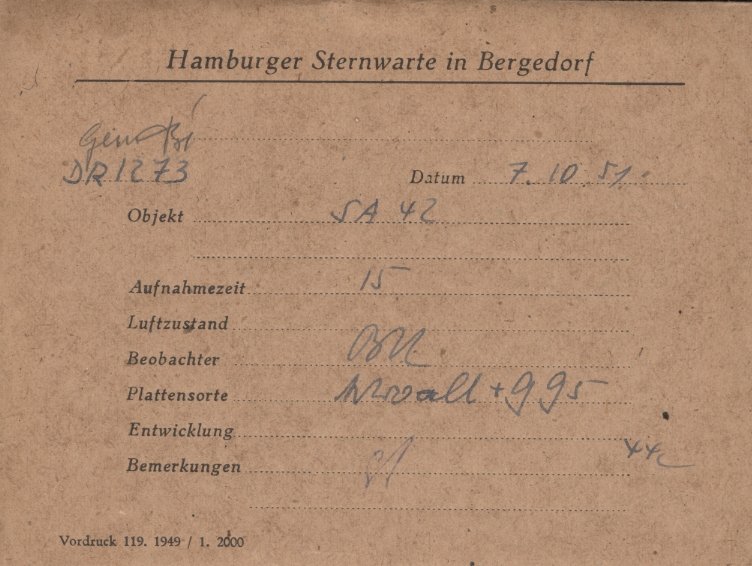 Hamburger Sternwarte in Bergedorf
DR 1273
Datum 7. 10. 51.
Objekt SA 42
Aufnahmezeit 15
Luftzustand
Beobachter
Plattensorte + 995
Entwicklung
Bemerkungen
Vordruck 119. 1949 / 1. 2000